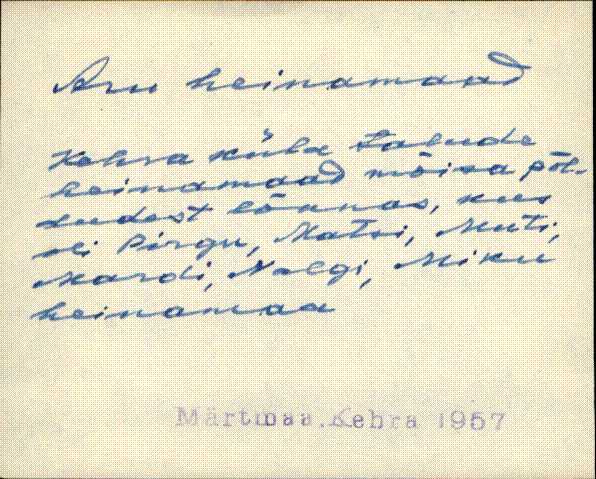 Aru heinamaad
Kehra küla talude
heinamaad mõisa põl-
dudest lõunas, kus
oli Pirgu, Matsi, Muti,
Mardi, Nolgi, Miku
heinamaa
Märtmaa.Kehra 1957